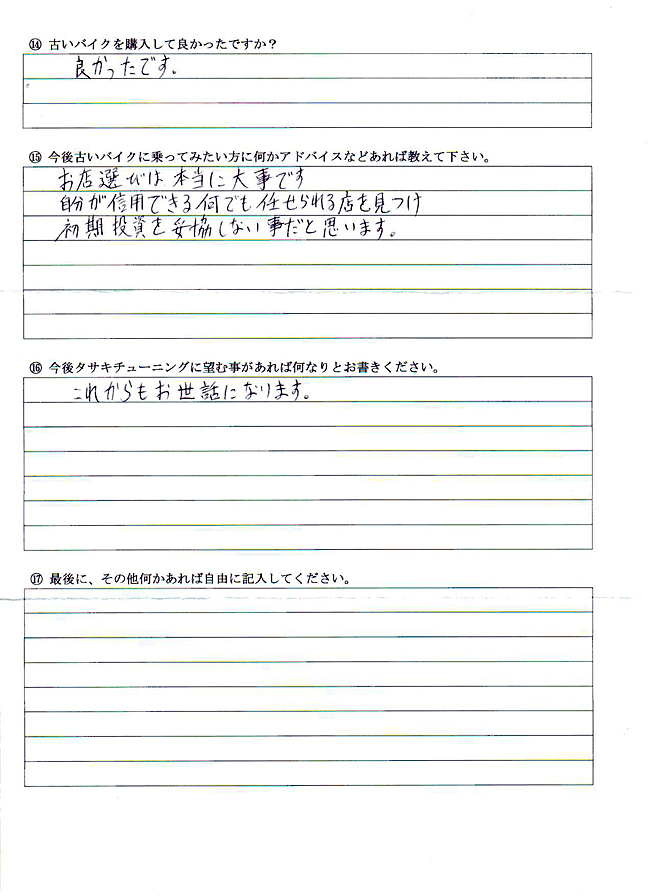 ⑭ 古いバイクを購入して良かったですか？
良かったです。
⑮ 今後古いバイクに乗ってみたい方に何かアドバイスなどあれば教えて下さい。
お店選びは本当に大事です
自分が信用できる何でも任せられる店を見つけ
初期投資を妥協しない事だと思います。
⑯ 今後タサキチューニングに望む事があれば何なりとお書きください。
これからもお世話になります。
⑰ 最後に、その他何かあれば自由に記入してください。